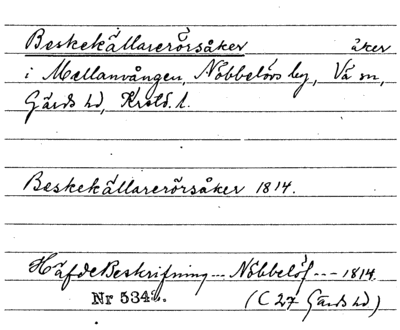 Beskekällarerörsåker åker
i Mellanvången, Nöbbelövs by, Vä sn,
Gärds hd, Krstd. l.
Beskekällarerörsåker 1814.
Häfde Beskrifning ... Nöbbelöf --- 1814.
Nr 5342. (C 27 Gärds hd)